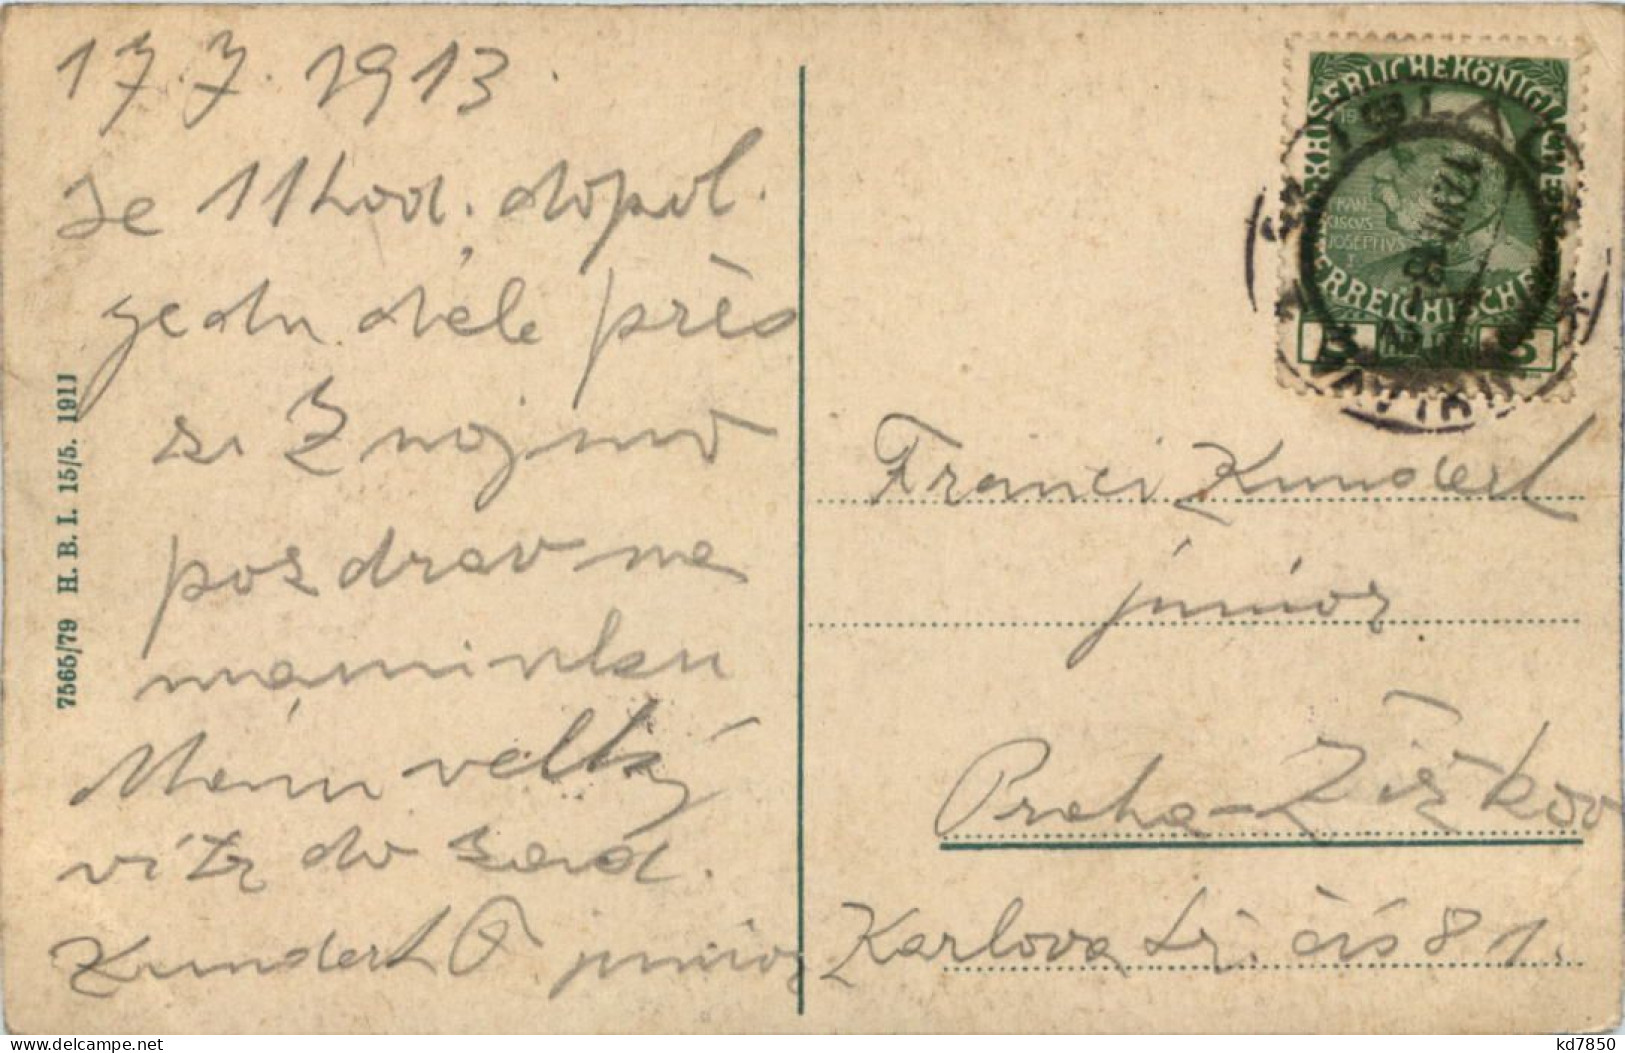 17.7. 1913.
Je 11 hod. dopol.
jedu dále přes
Znojmo
pozdrav na
maminku
Mám velký
vítr do zad.
Kunderl F junior
7565/79 H. B. I. 15/5. 1911
KAISERLICHEKÖNIGLICHE
ÖSTERREICHISCHE
FRAN
CISCVS
JOSEPHVS
I
5 5
17.VII.13
Franci Kunderl
junior.
Praha-Žižkov
Karlova tř. čís 81.
kd7850